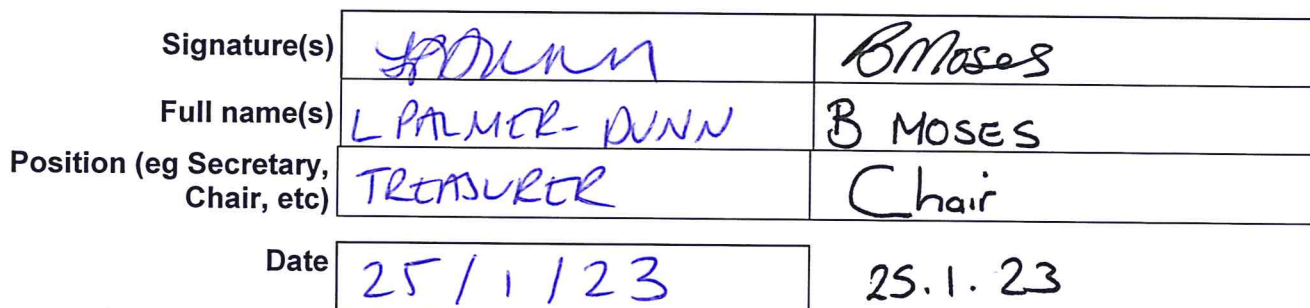 Signature(s) LPDunn BMoses
Full name(s) L PALMER-DUNN B MOSES
Position (eg Secretary,
Chair, etc) TREASURER Chair
Date 25/1/23 25.1.23